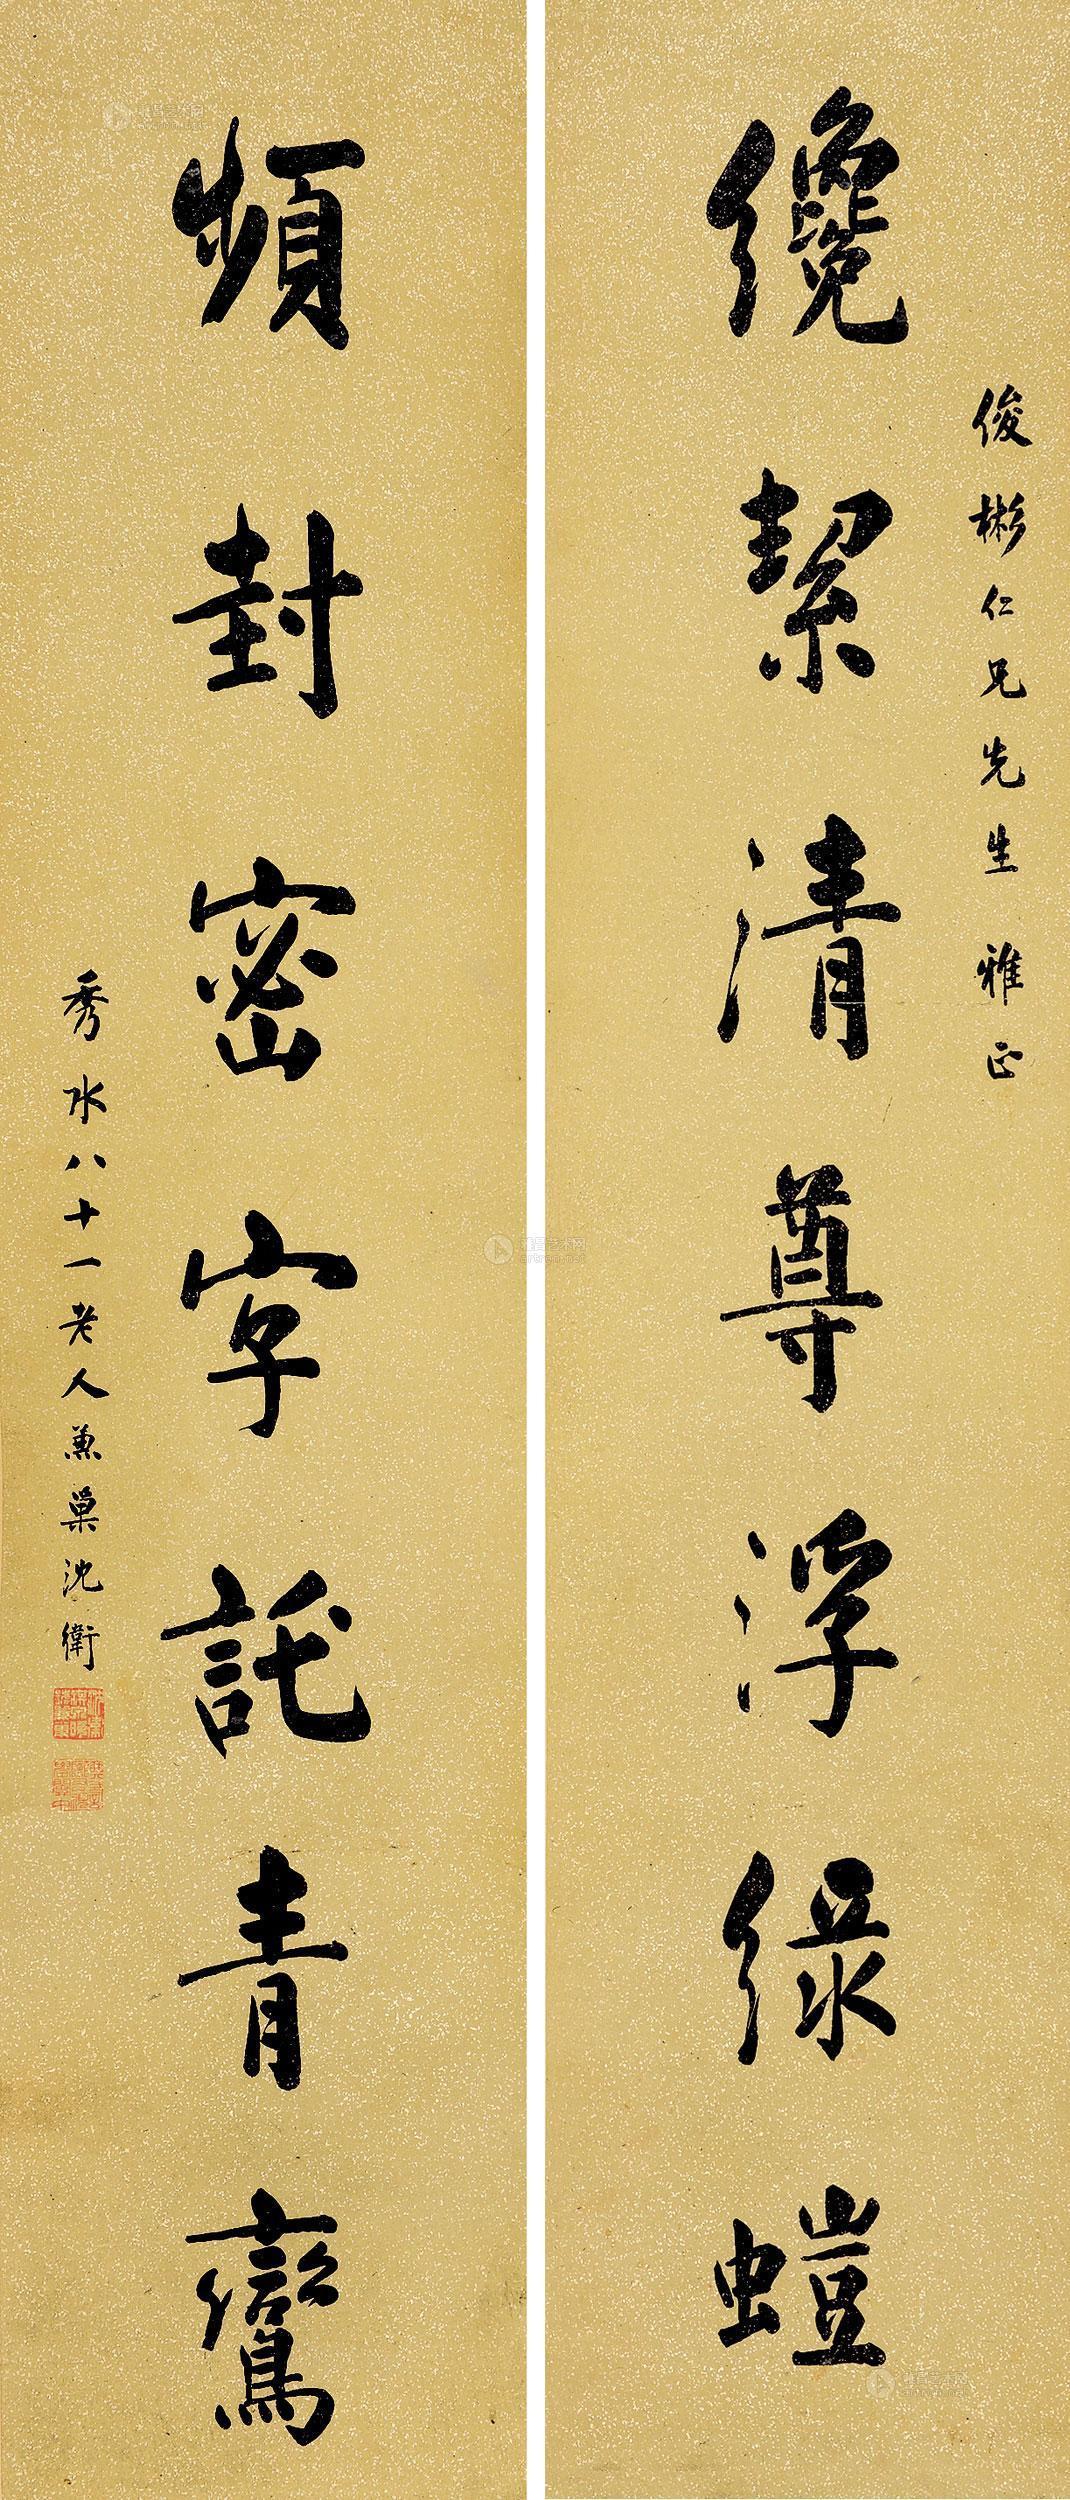 俊彬仁兄先生雅正
纔絜清尊浮綠螘
頻封密字託青鸞
秀水八十一老人兼巢沈衛